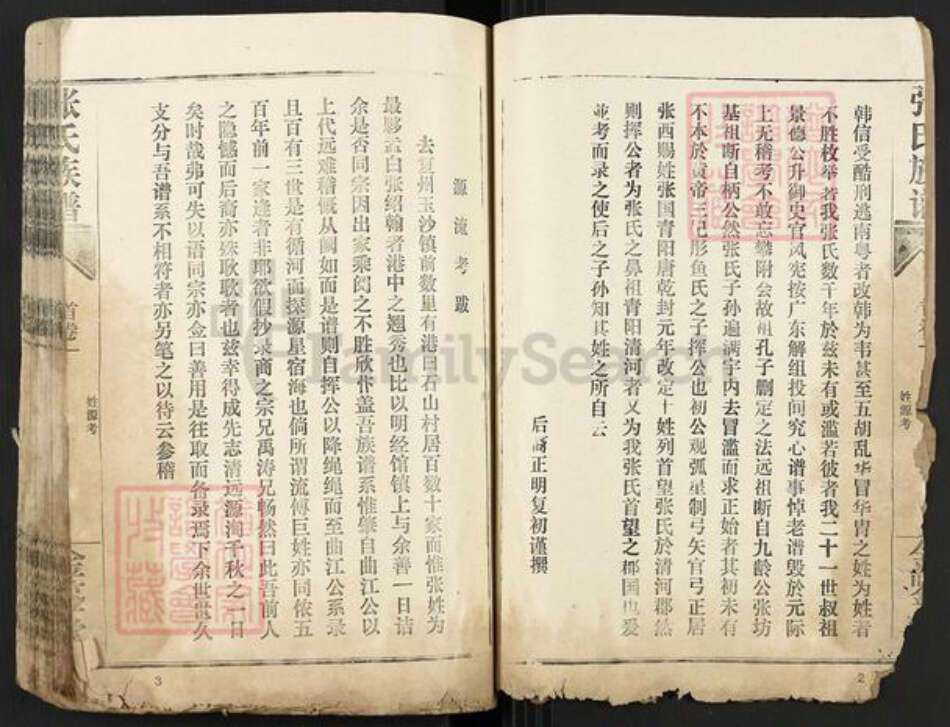 韩信受酷刑逃南粤者改韩为韦甚至五胡乱华冒华胄之姓为姓者
不胜枚举者我张氏数千年於兹未有或滥若彼者我二十一世叔祖
景德公升御史官风宪按广东解组投间究心谱事悼老谱毁於元际
上无稽考不敢忘攀附会故祖孔子删定之法远祖断自九龄公张坊
基祖断自柄公然张氏子孙遍满宇内去冒滥而求正始者其初未有
不本於黄帝三妃彤鱼氏之子挥公也初公观弧星制弓矢官弓正居
张西赐姓张国青阳唐乾封元年改定十姓列首望张氏於清河郡然
则挥公者为张氏之鼻祖青阳清河者又为我张氏首望之鄉国也爰
並考而录之使后之子孙知其姓之所自云
后裔正明复初谨撰
张氏族谱
首卷一
姓源考
2
源流考跋
去复州玉沙镇前数里有港曰石山村居百数十家而惟张姓为
最夥孟白张绍翰者港中之翘秀也比以明经馆镇上与余善一日诘
余是否同宗因出家乘阅之不胜欣忭盖吾族谱系惟肇自曲江公以
上代远难稽慨从阙如而是谱则自挥公以降绳绳而至曲江公系录
且百有三世是有循河而探源星宿海也倘所谓流传巨姓亦同侬五
百年前一家逢者非耶欲假抄录商之宗兄禹涛兄畅然曰此吾前人
之隐憾而后裔亦殊耿耿者也兹幸得成先志清远源洵千秋之一日
矣时哉弗可失以语同宗亦佥曰善用是往取而备录焉下余世世久
支分与吾谱系不相符者亦另笔之以待云参稽
张氏族谱
首卷一
姓源考
3
FamilySearch